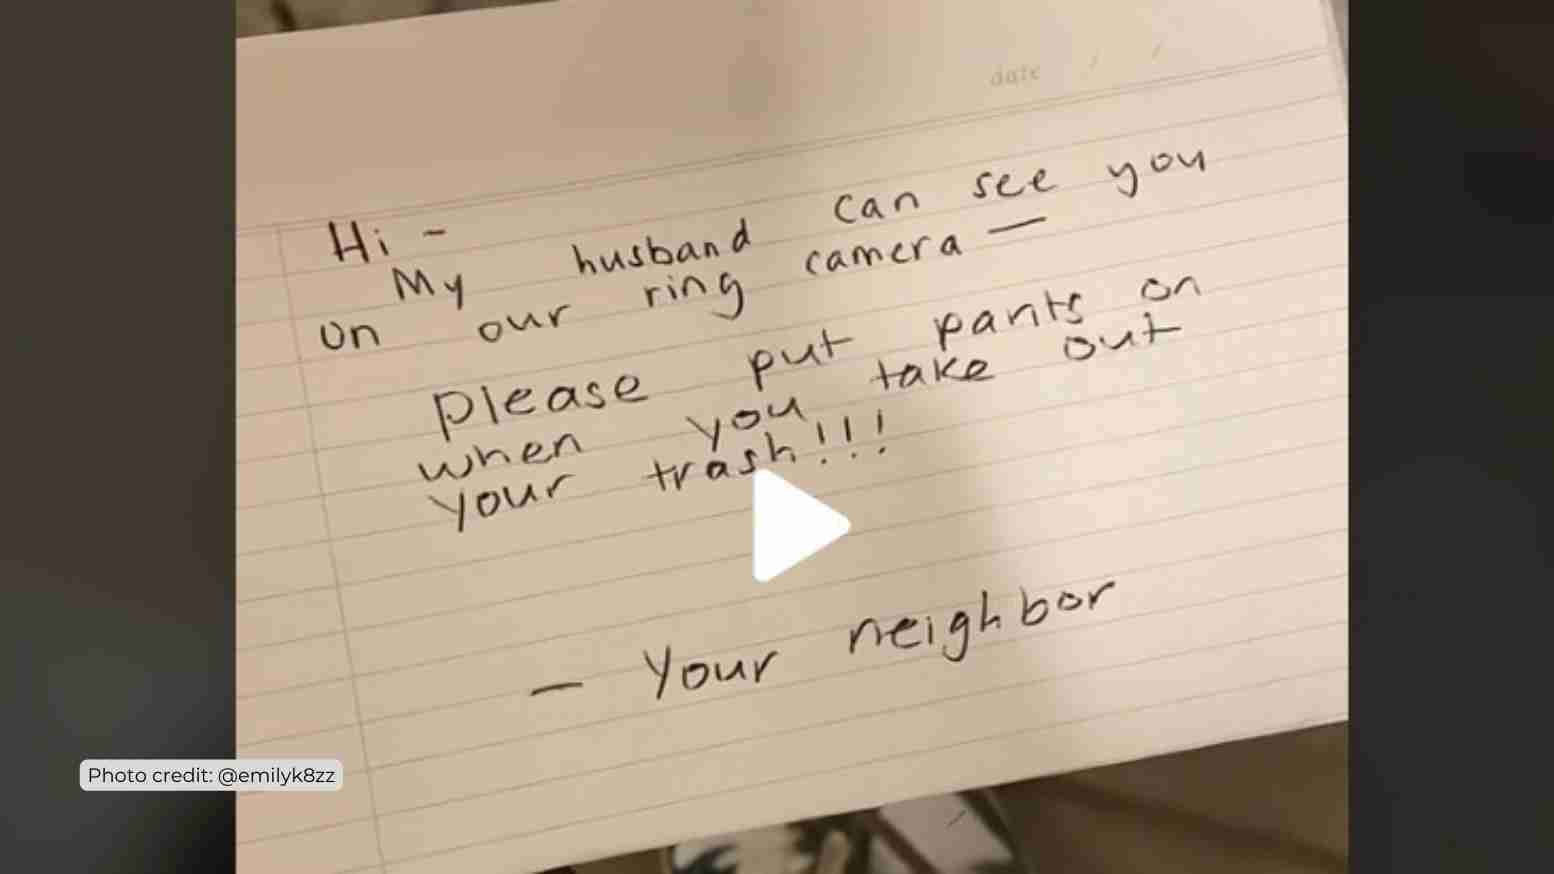 date / /
Hi -
My husband can see you
on our ring camera —
please put pants on
when you take out
your trash!!!
— Your neighbor
Photo credit: @emilyk8zz